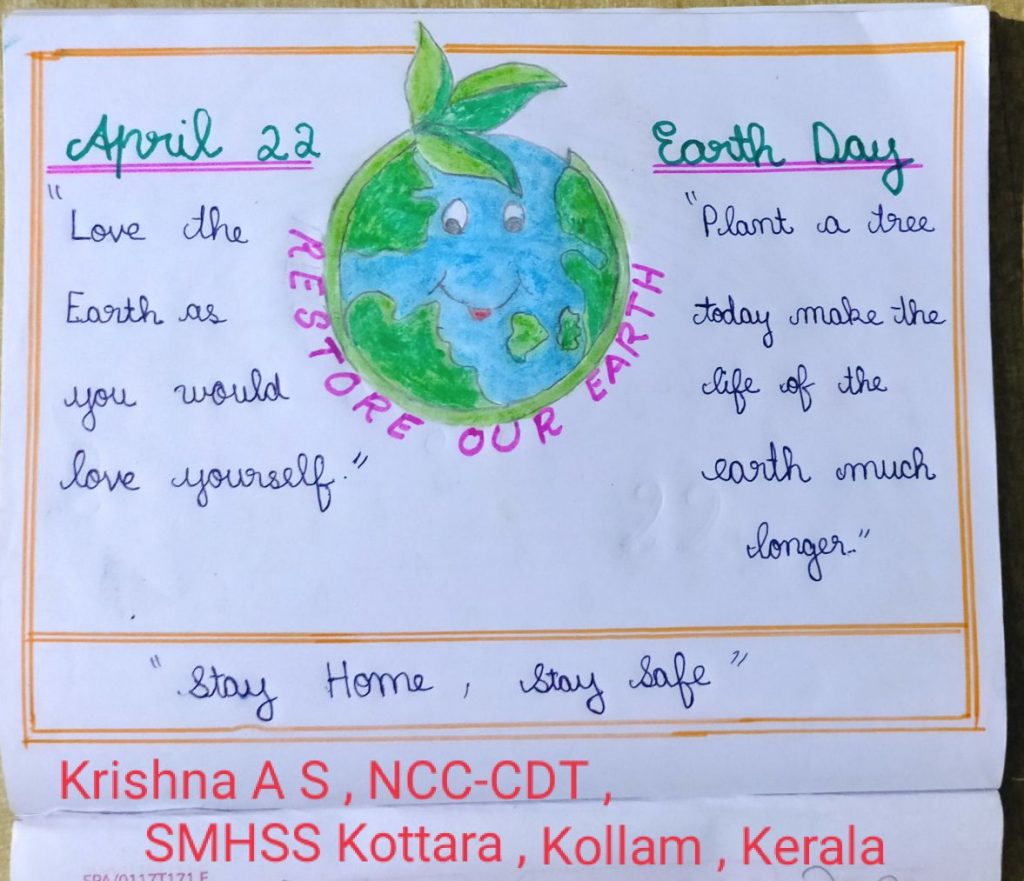 April 22
Earth Day
"Love the
Earth as
you would
love yourself."
RESTORE OUR EARTH
"Plant a tree
today make the
life of the
earth much
longer."
"Stay Home, Stay Safe"
Krishna A S , NCC-CDT ,
SMHSS Kottara , Kollam , Kerala